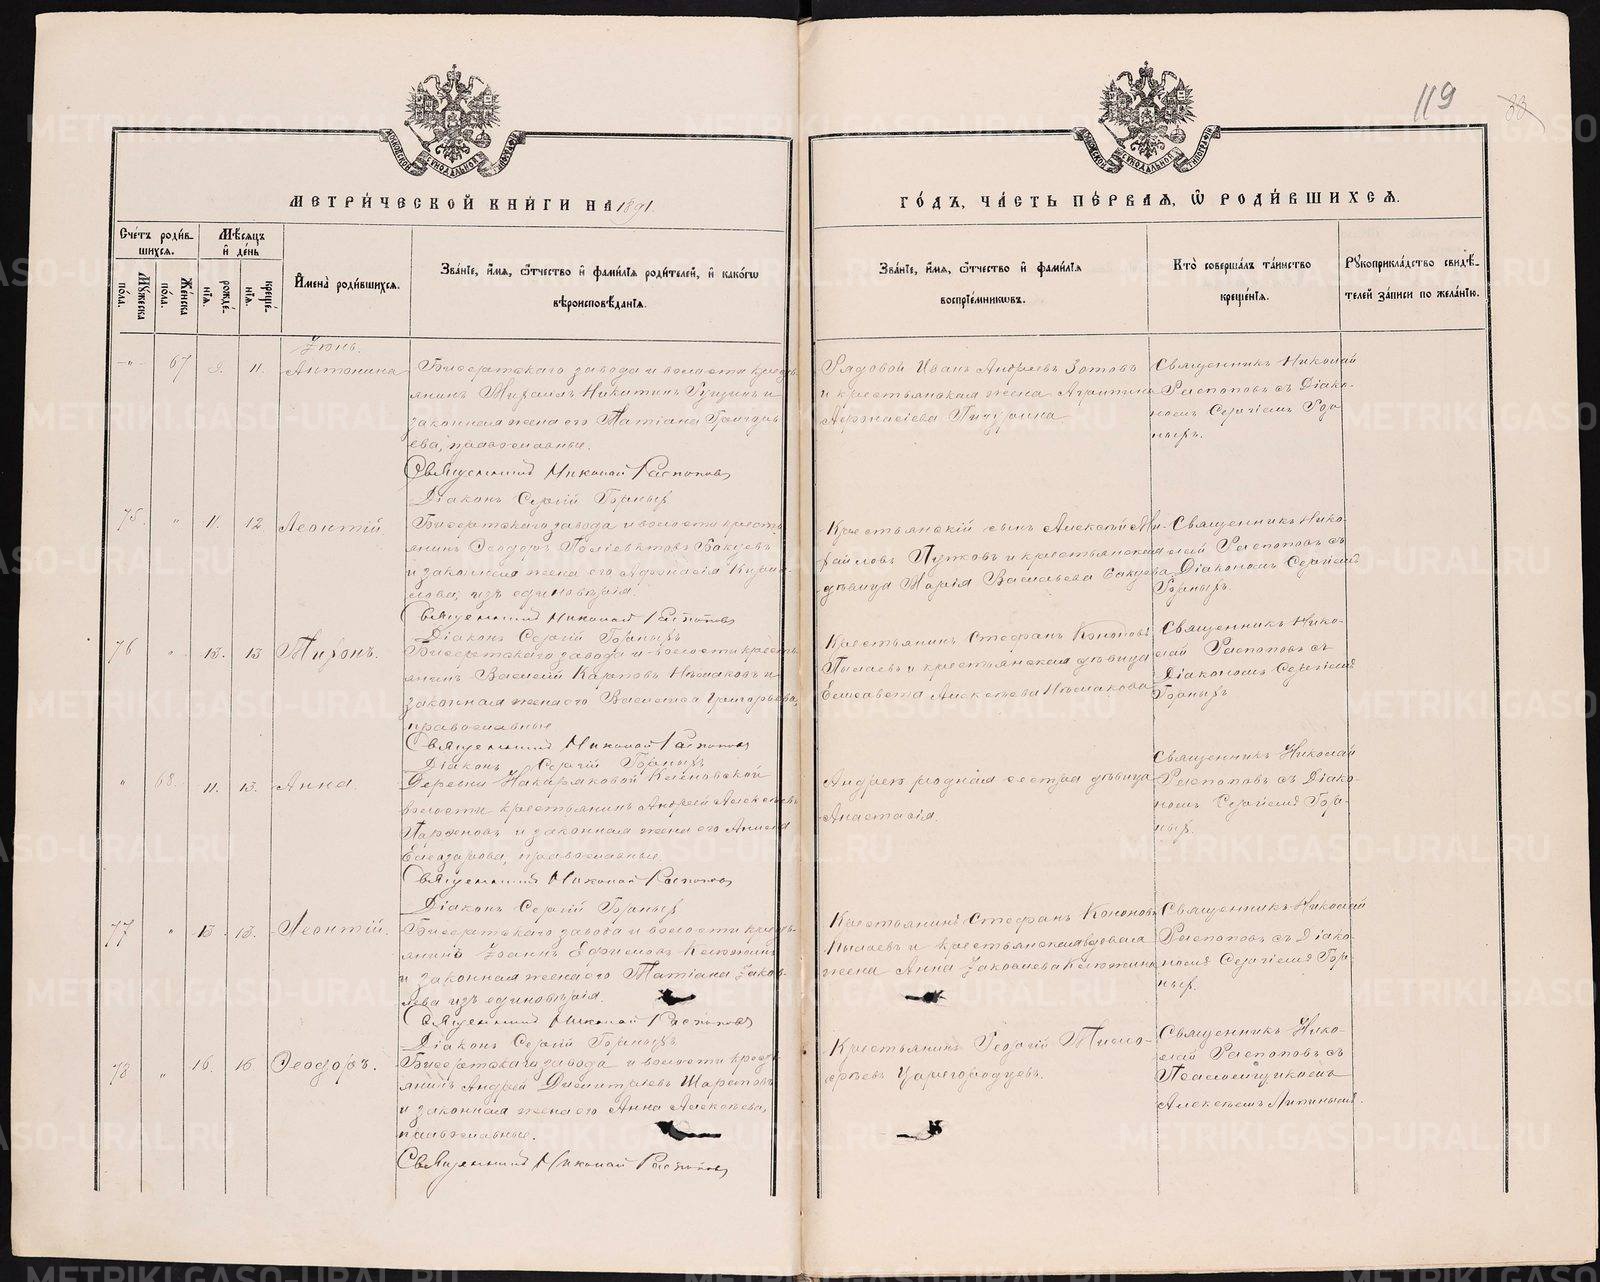 119
33
МЕТРИ́ЧЕСКОЙ КНИ́ГИ НА 1891
ГО́ДЪ, ЧА́СТЬ ПЕ́РВАЯ, Ѿ РОДИ́ВШИХСЯ.
Сче́тъ роди́в-
шихся.
Мꙋжеска по́ла.
Же́нска по́ла.
Мѣ́сяцъ
и҆ де́нь
рожде́-
нїя.
креще́-
нїя.
И҆мена̀ роди́вшихся.
Зва́нїе, и҆́мя, ѻ҆́тчество и҆ фами́лїя роди́телей, и҆ како́гѡ
вѣроисповѣ́данїя.
Зва́нїе, и҆́мя, ѻ҆́тчество и҆ фами́лїя
воспрїе́мниковъ.
Кто̀ соверша́лъ та́инство
креще́нїя.
Рꙋкоприкла́дство свидѣ́-
телей за́писи по жела́нїю.
Іюнь.
" 67 9. 11. Антонина
Бисертскаго завода и волости кресть-
янинъ Михаилъ Никитинъ и
законная жена его Татіана Григорь-
ева, православные.
Священникъ Николай Распоповъ
Діаконъ Сергій Горныхъ
Рядовой Иванъ Андреевъ Зотовъ
и крестьянская жена
Афанасіева
Священникъ Николай
Распоповъ съ Діако-
номъ Сергіемъ Гор-
ныхъ.
75. " 11. 12 Леонтій
Бисертскаго завода и волости кресть-
янинъ Ѳеодоръ Поліевктовъ
и законная жена его Афанасія Кирил-
лова, изъ единовѣрія.
Священникъ Николай Распоповъ
Діаконъ Сергій Горныхъ
Крестьянскій сынъ Алексѣй Ми-
хайловъ и крестьянская
дѣвица Марія Васильева
Священникъ Нико-
лай Распоповъ съ
Діакономъ Сергіемъ
Горныхъ.
76 " 13. 13 Тихонъ.
Бисертскаго завода и волости кресть-
янинъ Василій Карповъ Нѣмаковъ и
законная жена его Васса Григорьева,
православные
Священникъ Николай Распоповъ
Діаконъ Сергій Горныхъ
Крестьянинъ Стефанъ Кононовъ
Пылаевъ и крестьянская дѣвица
Елисавета Алексѣева Нѣмакова
Священникъ Нико-
лай Распоповъ съ
Діакономъ Сергіемъ
Горныхъ
" 68. 11. 13. Анна.
Деревни Накаряковой Кленовской
волости крестьянинъ Андрей Алексѣевъ
и законная жена его
Елеазарова, православные.
Священникъ Николай Распоповъ
Діаконъ Сергій Горныхъ
Андрея родная сестра дѣвица
Анастасія.
Священникъ Николай
Распоповъ съ Діако-
номъ Сергіемъ Гор-
ныхъ.
77 " 13. 13. Леонтій.
Бисертскаго завода и волости кресть-
янинъ Іоаннъ Ефимовъ Келюжинъ
и законная жена его Татіана Іаков-
лева изъ единовѣрія.
Священникъ Николай Распоповъ
Діаконъ Сергій Горныхъ
Крестьянинъ Стефанъ Кононовъ
Пылаевъ и крестьянская
жена Анна Іаковлева Келюжина
Священникъ Николай
Распоповъ съ Діако-
номъ Сергіемъ Гор-
ныхъ.
78 " 16. 16. Ѳеодоръ.
Бисертскаго завода и волости кресть-
янинъ Андрей Димитріевъ Шараповъ
и законная жена его Анна Алексѣева,
православные.
Священникъ Николай Распоповъ
Крестьянинъ Георгій Тимо-
ѳеевъ Царегородцевъ.
Священникъ Нико-
лай Распоповъ съ
Псаломщикомъ
Алексѣемъ Липинымъ.
METRIKI.GASO-URAL.RU